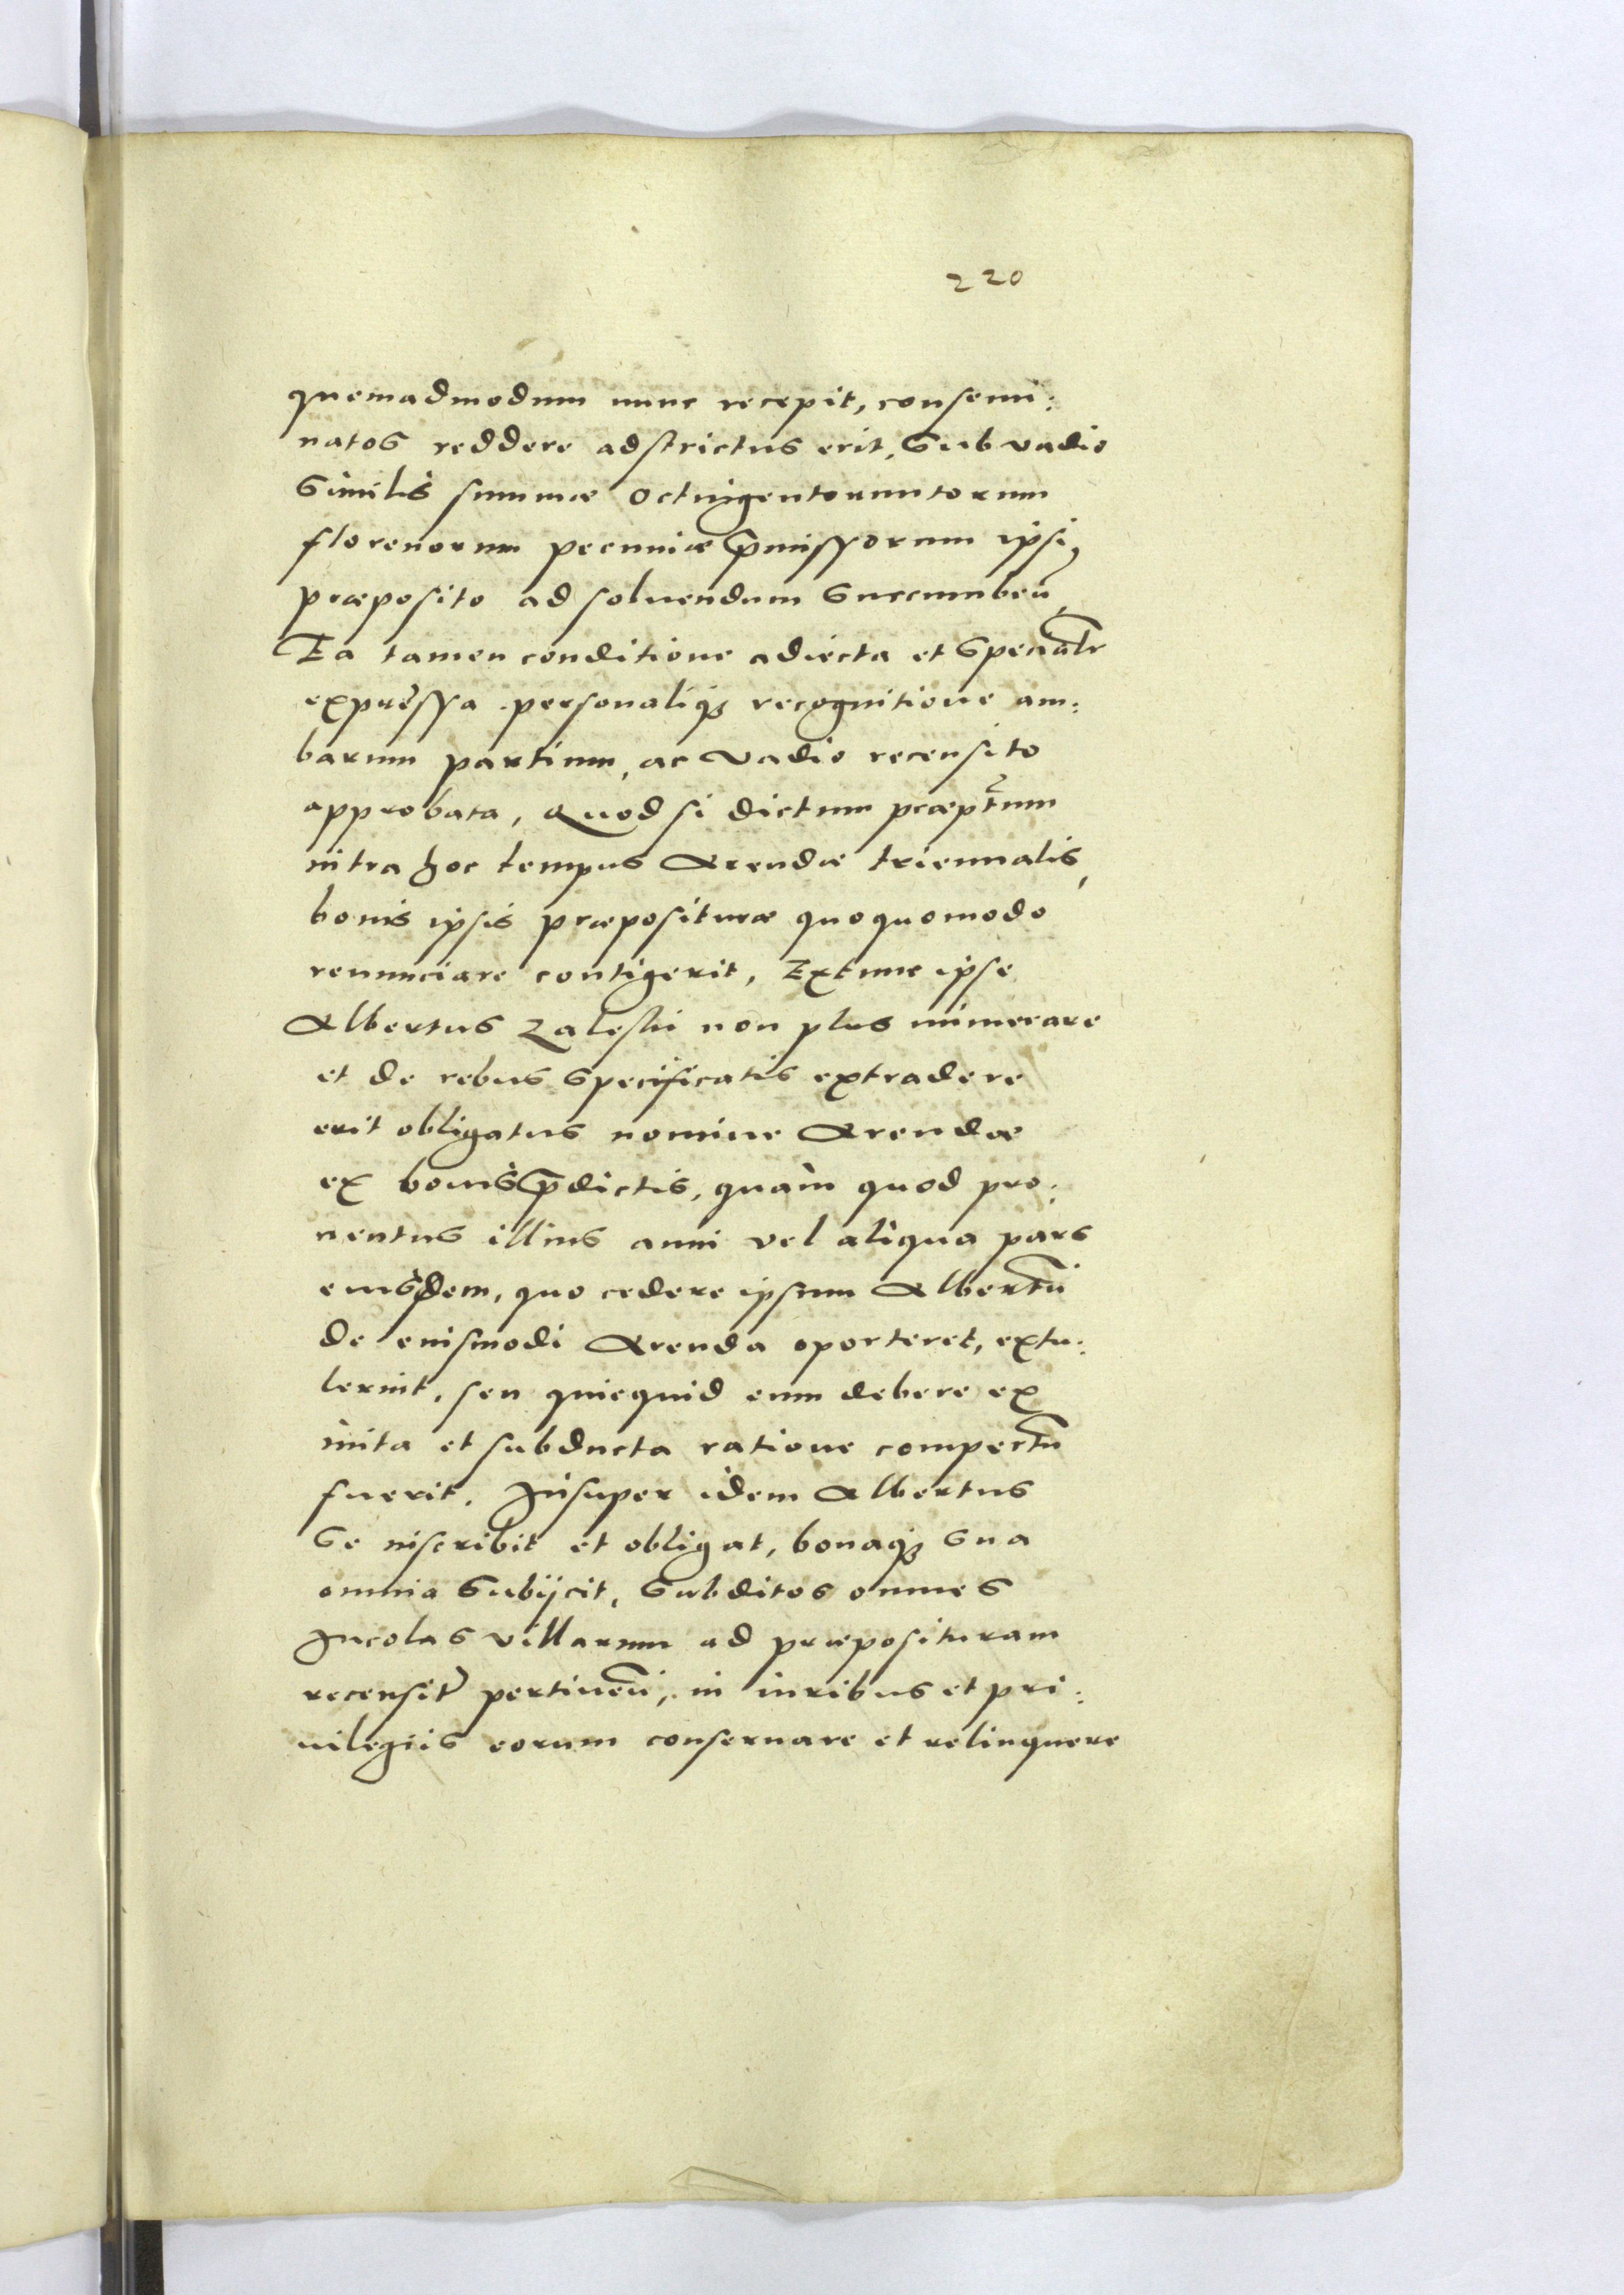 220
quemadmodum nunc recepit, consemi:
natos reddere adstrictus erit, Sub vadio
Similis summæ octuigentorumtorum
florenorum pecuniæ p̄missorum ipsi,
præposito ad soluendum Succumbeñ,
Ea tamen conditione adiecta et Speciatr̃
expressa personaliq3 recognitione am:
barum partium, ac vadio recensito
approbata, Quod si dictum præpt̃um
intra hoc tempus Arendæ triennalis,
bonis ipsis præposituræ quoquomodo
renunciare contigerit, Extunc ipse
Albertus Zaleski non plus numerare
et de rebus Specificatis extradere
erit obligatus nomine Arendæ
ex bonis p̄dictis, quàm quod pro:
uentus illius anni vel aliqua pars
eiusdem, quo cedere ipsum Albertũ
de eiusmodi Arenda oporteret, extu:
lerint, seu quicquid eum debere ex
inita et subducta ratione compertũ
fuerit. Insuper idem Albertus
Se inscribit et obligat, bonaq3 Sua
omnia Subijcit, Subditos omnes
Incolas villarum ad præposituram
recensit̃ pertineñ, in iuribus et pri:
uilegiis eorum conseruare et relinquere